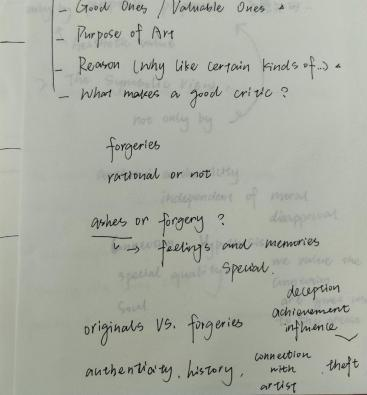 - Good Ones / Valuable Ones
- Purpose of Art
- Reason (Why like certain kinds of...)
- What makes a good critic?
forgeries
rational or not
ashes or forgery?
↳ → feelings and memories
special.
deception
originals VS. forgeries achievement
influence
authenticity, history, connection with artist, theft